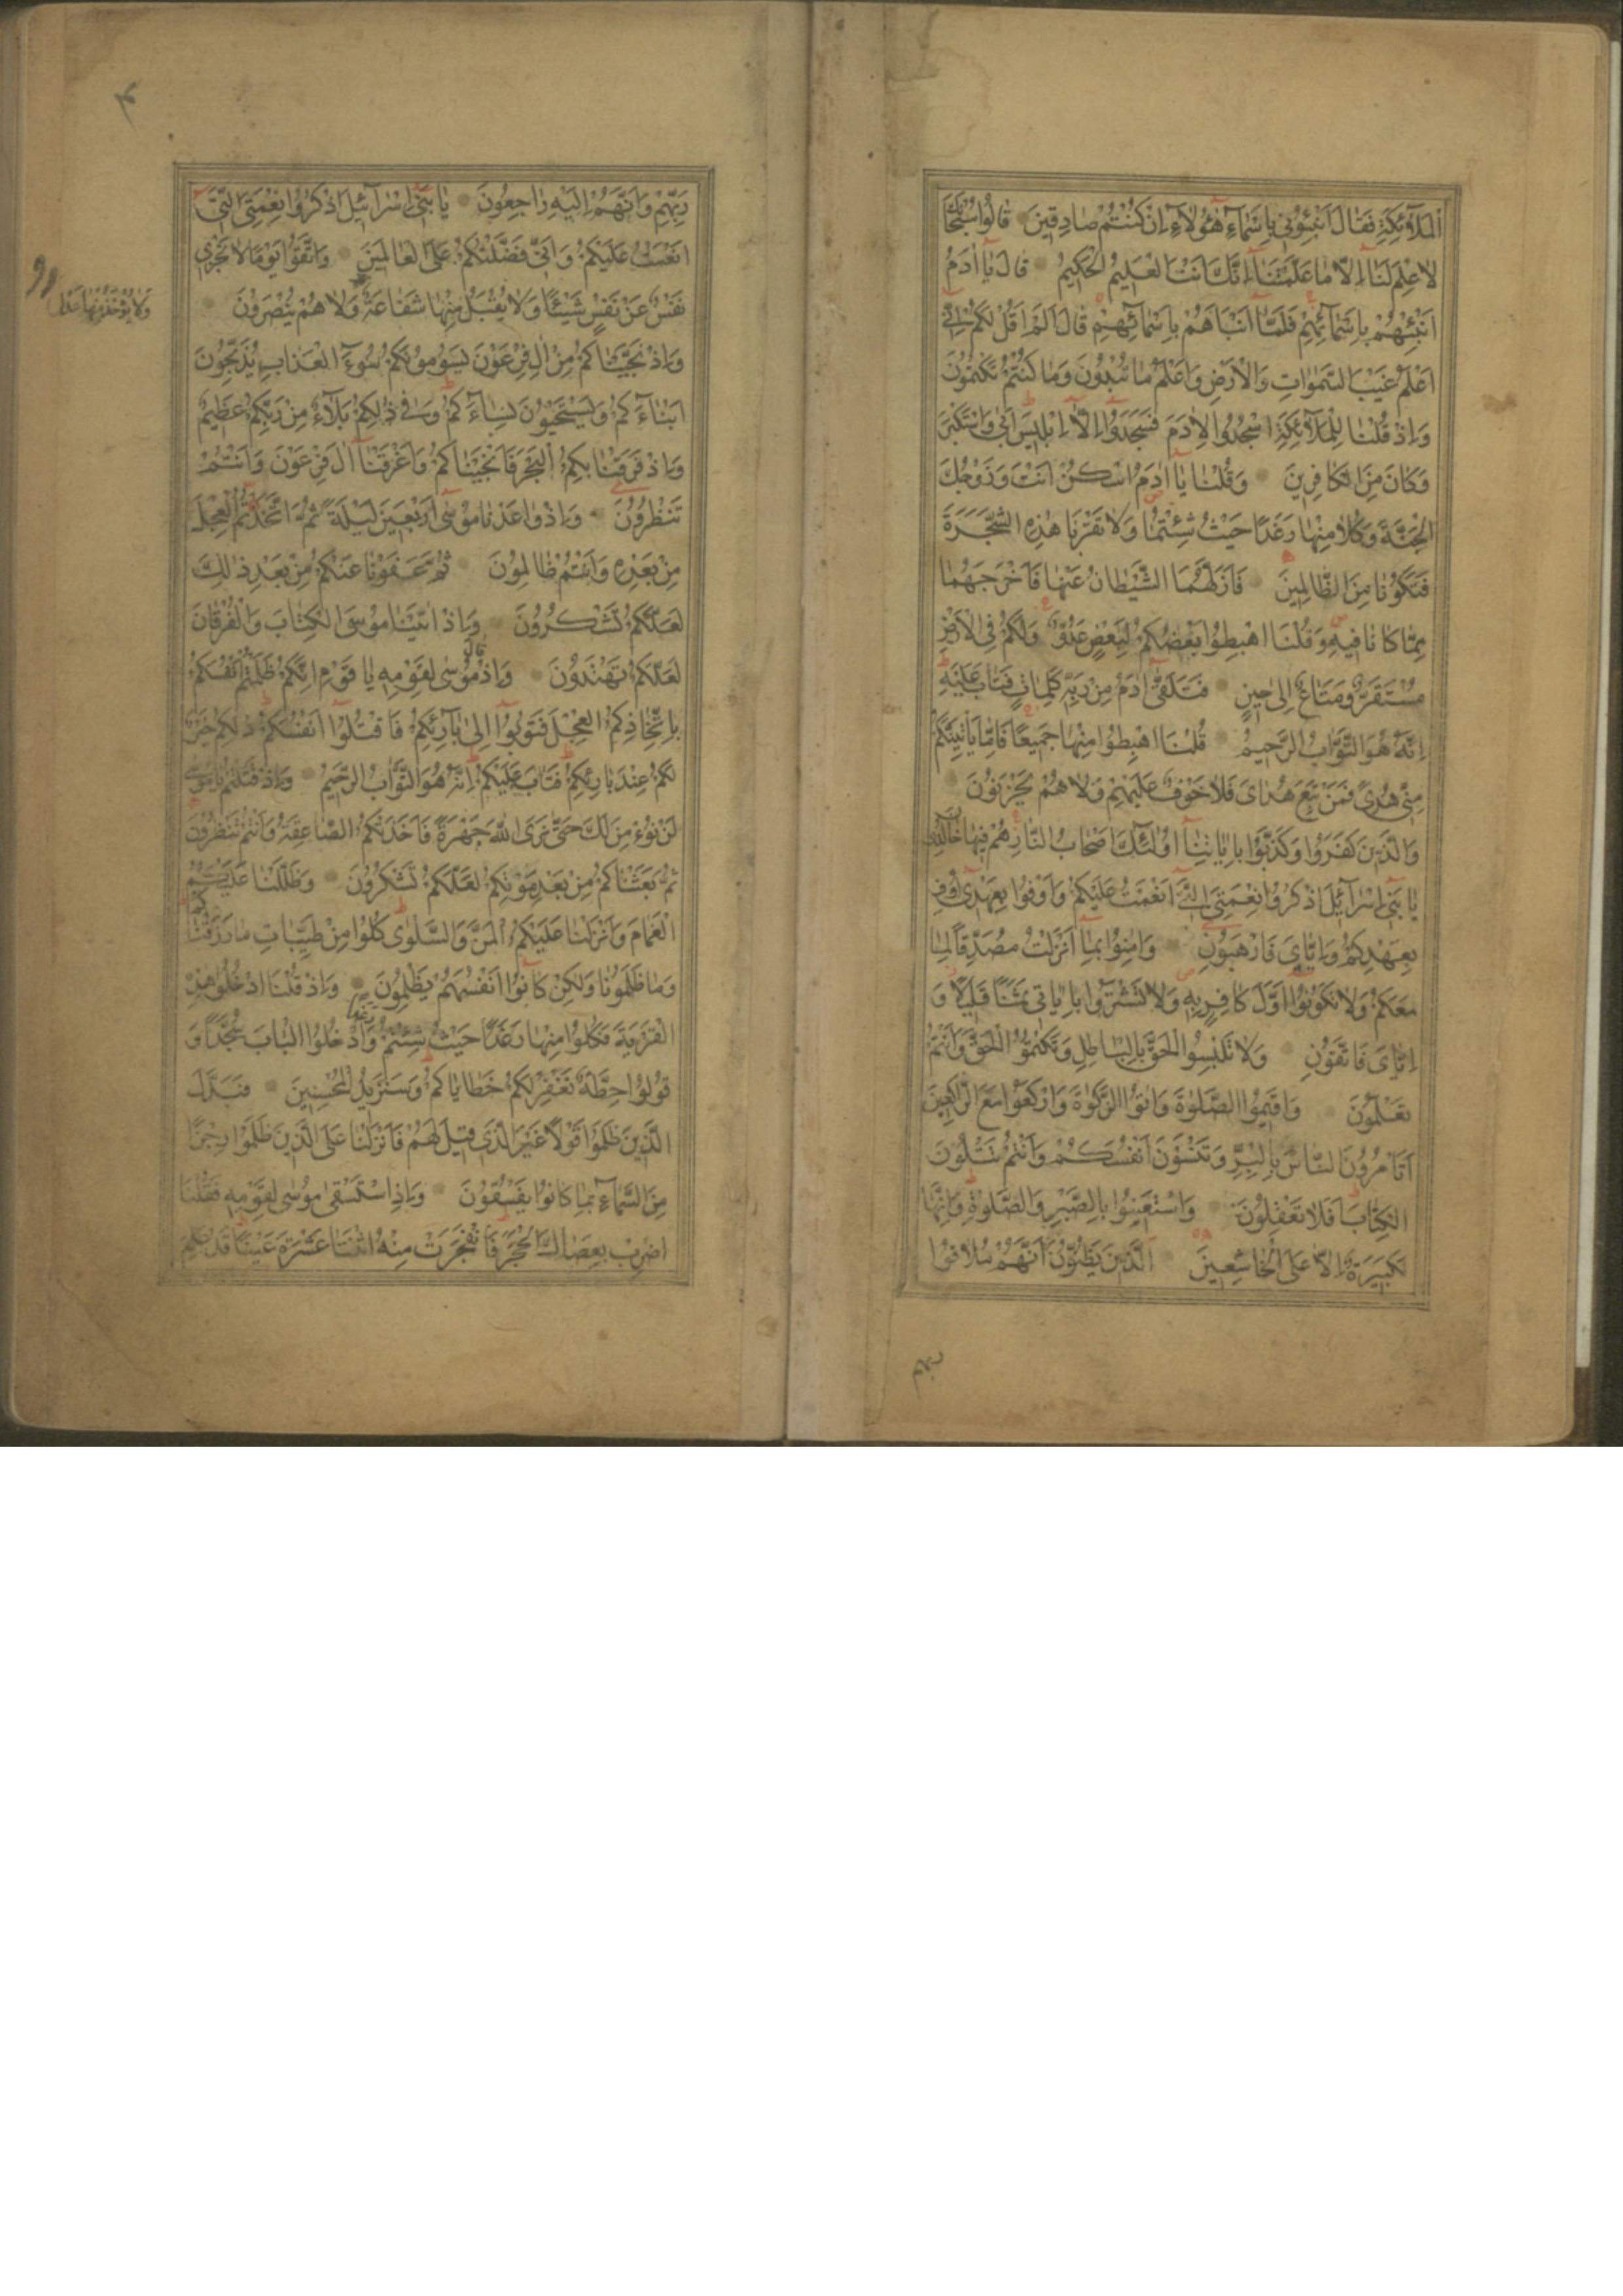 الْمَلَآئِكَةِ فَقَالَ اَنْبِئُونِي بِاَسْمَآءِ هٰٓؤُلَآءِ اِنْ كُنْتُمْ صَادِقِينَ قَالُوا سُبْحَانَكَ
لَا عِلْمَ لَنَا اِلَّا مَا عَلَّمْتَنَا اِنَّكَ اَنْتَ الْعَلِيمُ الْحَكِيمُ قَالَ يَا اٰدَمُ
اَنْبِئْهُمْ بِاَسْمَآئِهِمْ فَلَمَّا اَنْبَاَهُمْ بِاَسْمَآئِهِمْ قَالَ اَلَمْ اَقُلْ لَكُمْ اِنِّي
اَعْلَمُ غَيْبَ السَّمٰوَاتِ وَالْاَرْضِ وَاَعْلَمُ مَا تُبْدُونَ وَمَا كُنْتُمْ تَكْتُمُونَ
وَاِذْ قُلْنَا لِلْمَلَآئِكَةِ اسْجُدُوا لِاٰدَمَ فَسَجَدُوا اِلَّا اِبْلِيسَ اَبٰى وَاسْتَكْبَرَ
وَكَانَ مِنَ الْكَافِرِينَ وَقُلْنَا يَا اٰدَمُ اسْكُنْ اَنْتَ وَزَوْجُكَ
الْجَنَّةَ وَكُلَا مِنْهَا رَغَدًا حَيْثُ شِئْتُمَا وَلَا تَقْرَبَا هٰذِهِ الشَّجَرَةَ
فَتَكُونَا مِنَ الظَّالِمِينَ فَاَزَلَّهُمَا الشَّيْطَانُ عَنْهَا فَاَخْرَجَهُمَا
مِمَّا كَانَا فِيهِ وَقُلْنَا اهْبِطُوا بَعْضُكُمْ لِبَعْضٍ عَدُوٌّ وَلَكُمْ فِي الْاَرْضِ
مُسْتَقَرٌّ وَمَتَاعٌ اِلٰى حِينٍ فَتَلَقّٰى اٰدَمُ مِنْ رَبِّهِ كَلِمَاتٍ فَتَابَ عَلَيْهِ
اِنَّهُ هُوَ التَّوَّابُ الرَّحِيمُ قُلْنَا اهْبِطُوا مِنْهَا جَمِيعًا فَاِمَّا يَاْتِيَنَّكُمْ
مِنِّي هُدًى فَمَنْ تَبِعَ هُدَايَ فَلَا خَوْفٌ عَلَيْهِمْ وَلَا هُمْ يَحْزَنُونَ
وَالَّذِينَ كَفَرُوا وَكَذَّبُوا بِاٰيَاتِنَا اُولٰٓئِكَ اَصْحَابُ النَّارِ هُمْ فِيهَا خَالِدُونَ
يَا بَنِي اِسْرَآئِيلَ اذْكُرُوا نِعْمَتِيَ الَّتِي اَنْعَمْتُ عَلَيْكُمْ وَاَوْفُوا بِعَهْدِي اُوفِ
بِعَهْدِكُمْ وَاِيَّايَ فَارْهَبُونِ وَاٰمِنُوا بِمَا اَنْزَلْتُ مُصَدِّقًا لِمَا
مَعَكُمْ وَلَا تَكُونُوا اَوَّلَ كَافِرٍ بِهِ وَلَا تَشْتَرُوا بِاٰيَاتِي ثَمَنًا قَلِيلًا وَ
اِيَّايَ فَاتَّقُونِ وَلَا تَلْبِسُوا الْحَقَّ بِالْبَاطِلِ وَتَكْتُمُوا الْحَقَّ وَاَنْتُمْ
تَعْلَمُونَ وَاَقِيمُوا الصَّلٰوةَ وَاٰتُوا الزَّكٰوةَ وَارْكَعُوا مَعَ الرَّاكِعِينَ
اَتَاْمُرُونَ النَّاسَ بِالْبِرِّ وَتَنْسَوْنَ اَنْفُسَكُمْ وَاَنْتُمْ تَتْلُونَ
الْكِتَابَ اَفَلَا تَعْقِلُونَ وَاسْتَعِينُوا بِالصَّبْرِ وَالصَّلٰوةِ وَاِنَّهَا
لَكَبِيرَةٌ اِلَّا عَلَى الْخَاشِعِينَ اَلَّذِينَ يَظُنُّونَ اَنَّهُمْ مُلَاقُوا
ربهم
٤
رَبِّهِمْ وَاَنَّهُمْ اِلَيْهِ رَاجِعُونَ يَا بَنِي اِسْرَآئِيلَ اذْكُرُوا نِعْمَتِيَ الَّتِي
اَنْعَمْتُ عَلَيْكُمْ وَاَنِّي فَضَّلْتُكُمْ عَلَى الْعَالَمِينَ وَاتَّقُوا يَوْمًا لَا تَجْزِي
نَفْسٌ عَنْ نَفْسٍ شَيْئًا وَلَا يُقْبَلُ مِنْهَا شَفَاعَةٌ وَلَا هُمْ يُنْصَرُونَ
وَلَا يُؤْخَذُ مِنْهَا عَدْلٌ
وَاِذْ نَجَّيْنَاكُمْ مِنْ اٰلِ فِرْعَوْنَ يَسُومُونَكُمْ سُوٓءَ الْعَذَابِ يُذَبِّحُونَ
اَبْنَآءَكُمْ وَيَسْتَحْيُونَ نِسَآءَكُمْ وَفِي ذٰلِكُمْ بَلَآءٌ مِنْ رَبِّكُمْ عَظِيمٌ
وَاِذْ فَرَقْنَا بِكُمُ الْبَحْرَ فَاَنْجَيْنَاكُمْ وَاَغْرَقْنَا اٰلَ فِرْعَوْنَ وَاَنْتُمْ
تَنْظُرُونَ وَاِذْ وَاعَدْنَا مُوسٰى اَرْبَعِينَ لَيْلَةً ثُمَّ اتَّخَذْتُمُ الْعِجْلَ
مِنْ بَعْدِهِ وَاَنْتُمْ ظَالِمُونَ ثُمَّ عَفَوْنَا عَنْكُمْ مِنْ بَعْدِ ذٰلِكَ
لَعَلَّكُمْ تَشْكُرُونَ وَاِذْ اٰتَيْنَا مُوسَى الْكِتَابَ وَالْفُرْقَانَ
لَعَلَّكُمْ تَهْتَدُونَ وَاِذْ قَالَ مُوسٰى لِقَوْمِهِ يَا قَوْمِ اِنَّكُمْ ظَلَمْتُمْ اَنْفُسَكُمْ
بِاتِّخَاذِكُمُ الْعِجْلَ فَتُوبُوا اِلٰى بَارِئِكُمْ فَاقْتُلُوا اَنْفُسَكُمْ ذٰلِكُمْ خَيْرٌ
لَكُمْ عِنْدَ بَارِئِكُمْ فَتَابَ عَلَيْكُمْ اِنَّهُ هُوَ التَّوَّابُ الرَّحِيمُ وَاِذْ قُلْتُمْ يَا مُوسٰى
لَنْ نُؤْمِنَ لَكَ حَتّٰى نَرَى اللّٰهَ جَهْرَةً فَاَخَذَتْكُمُ الصَّاعِقَةُ وَاَنْتُمْ تَنْظُرُونَ
ثُمَّ بَعَثْنَاكُمْ مِنْ بَعْدِ مَوْتِكُمْ لَعَلَّكُمْ تَشْكُرُونَ وَظَلَّلْنَا عَلَيْكُمُ
الْغَمَامَ وَاَنْزَلْنَا عَلَيْكُمُ الْمَنَّ وَالسَّلْوٰى كُلُوا مِنْ طَيِّبَاتِ مَا رَزَقْنَاكُمْ
وَمَا ظَلَمُونَا وَلٰكِنْ كَانُوا اَنْفُسَهُمْ يَظْلِمُونَ وَاِذْ قُلْنَا ادْخُلُوا هٰذِهِ
الْقَرْيَةَ فَكُلُوا مِنْهَا حَيْثُ شِئْتُمْ رَغَدًا وَادْخُلُوا الْبَابَ سُجَّدًا وَ
قُولُوا حِطَّةٌ نَغْفِرْ لَكُمْ خَطَايَاكُمْ وَسَنَزِيدُ الْمُحْسِنِينَ فَبَدَّلَ
الَّذِينَ ظَلَمُوا قَوْلًا غَيْرَ الَّذِي قِيلَ لَهُمْ فَاَنْزَلْنَا عَلَى الَّذِينَ ظَلَمُوا رِجْزًا
مِنَ السَّمَآءِ بِمَا كَانُوا يَفْسُقُونَ وَاِذِ اسْتَسْقٰى مُوسٰى لِقَوْمِهِ فَقُلْنَا
اضْرِبْ بِعَصَاكَ الْحَجَرَ فَانْفَجَرَتْ مِنْهُ اثْنَتَا عَشْرَةَ عَيْنًا قَدْ عَلِمَ